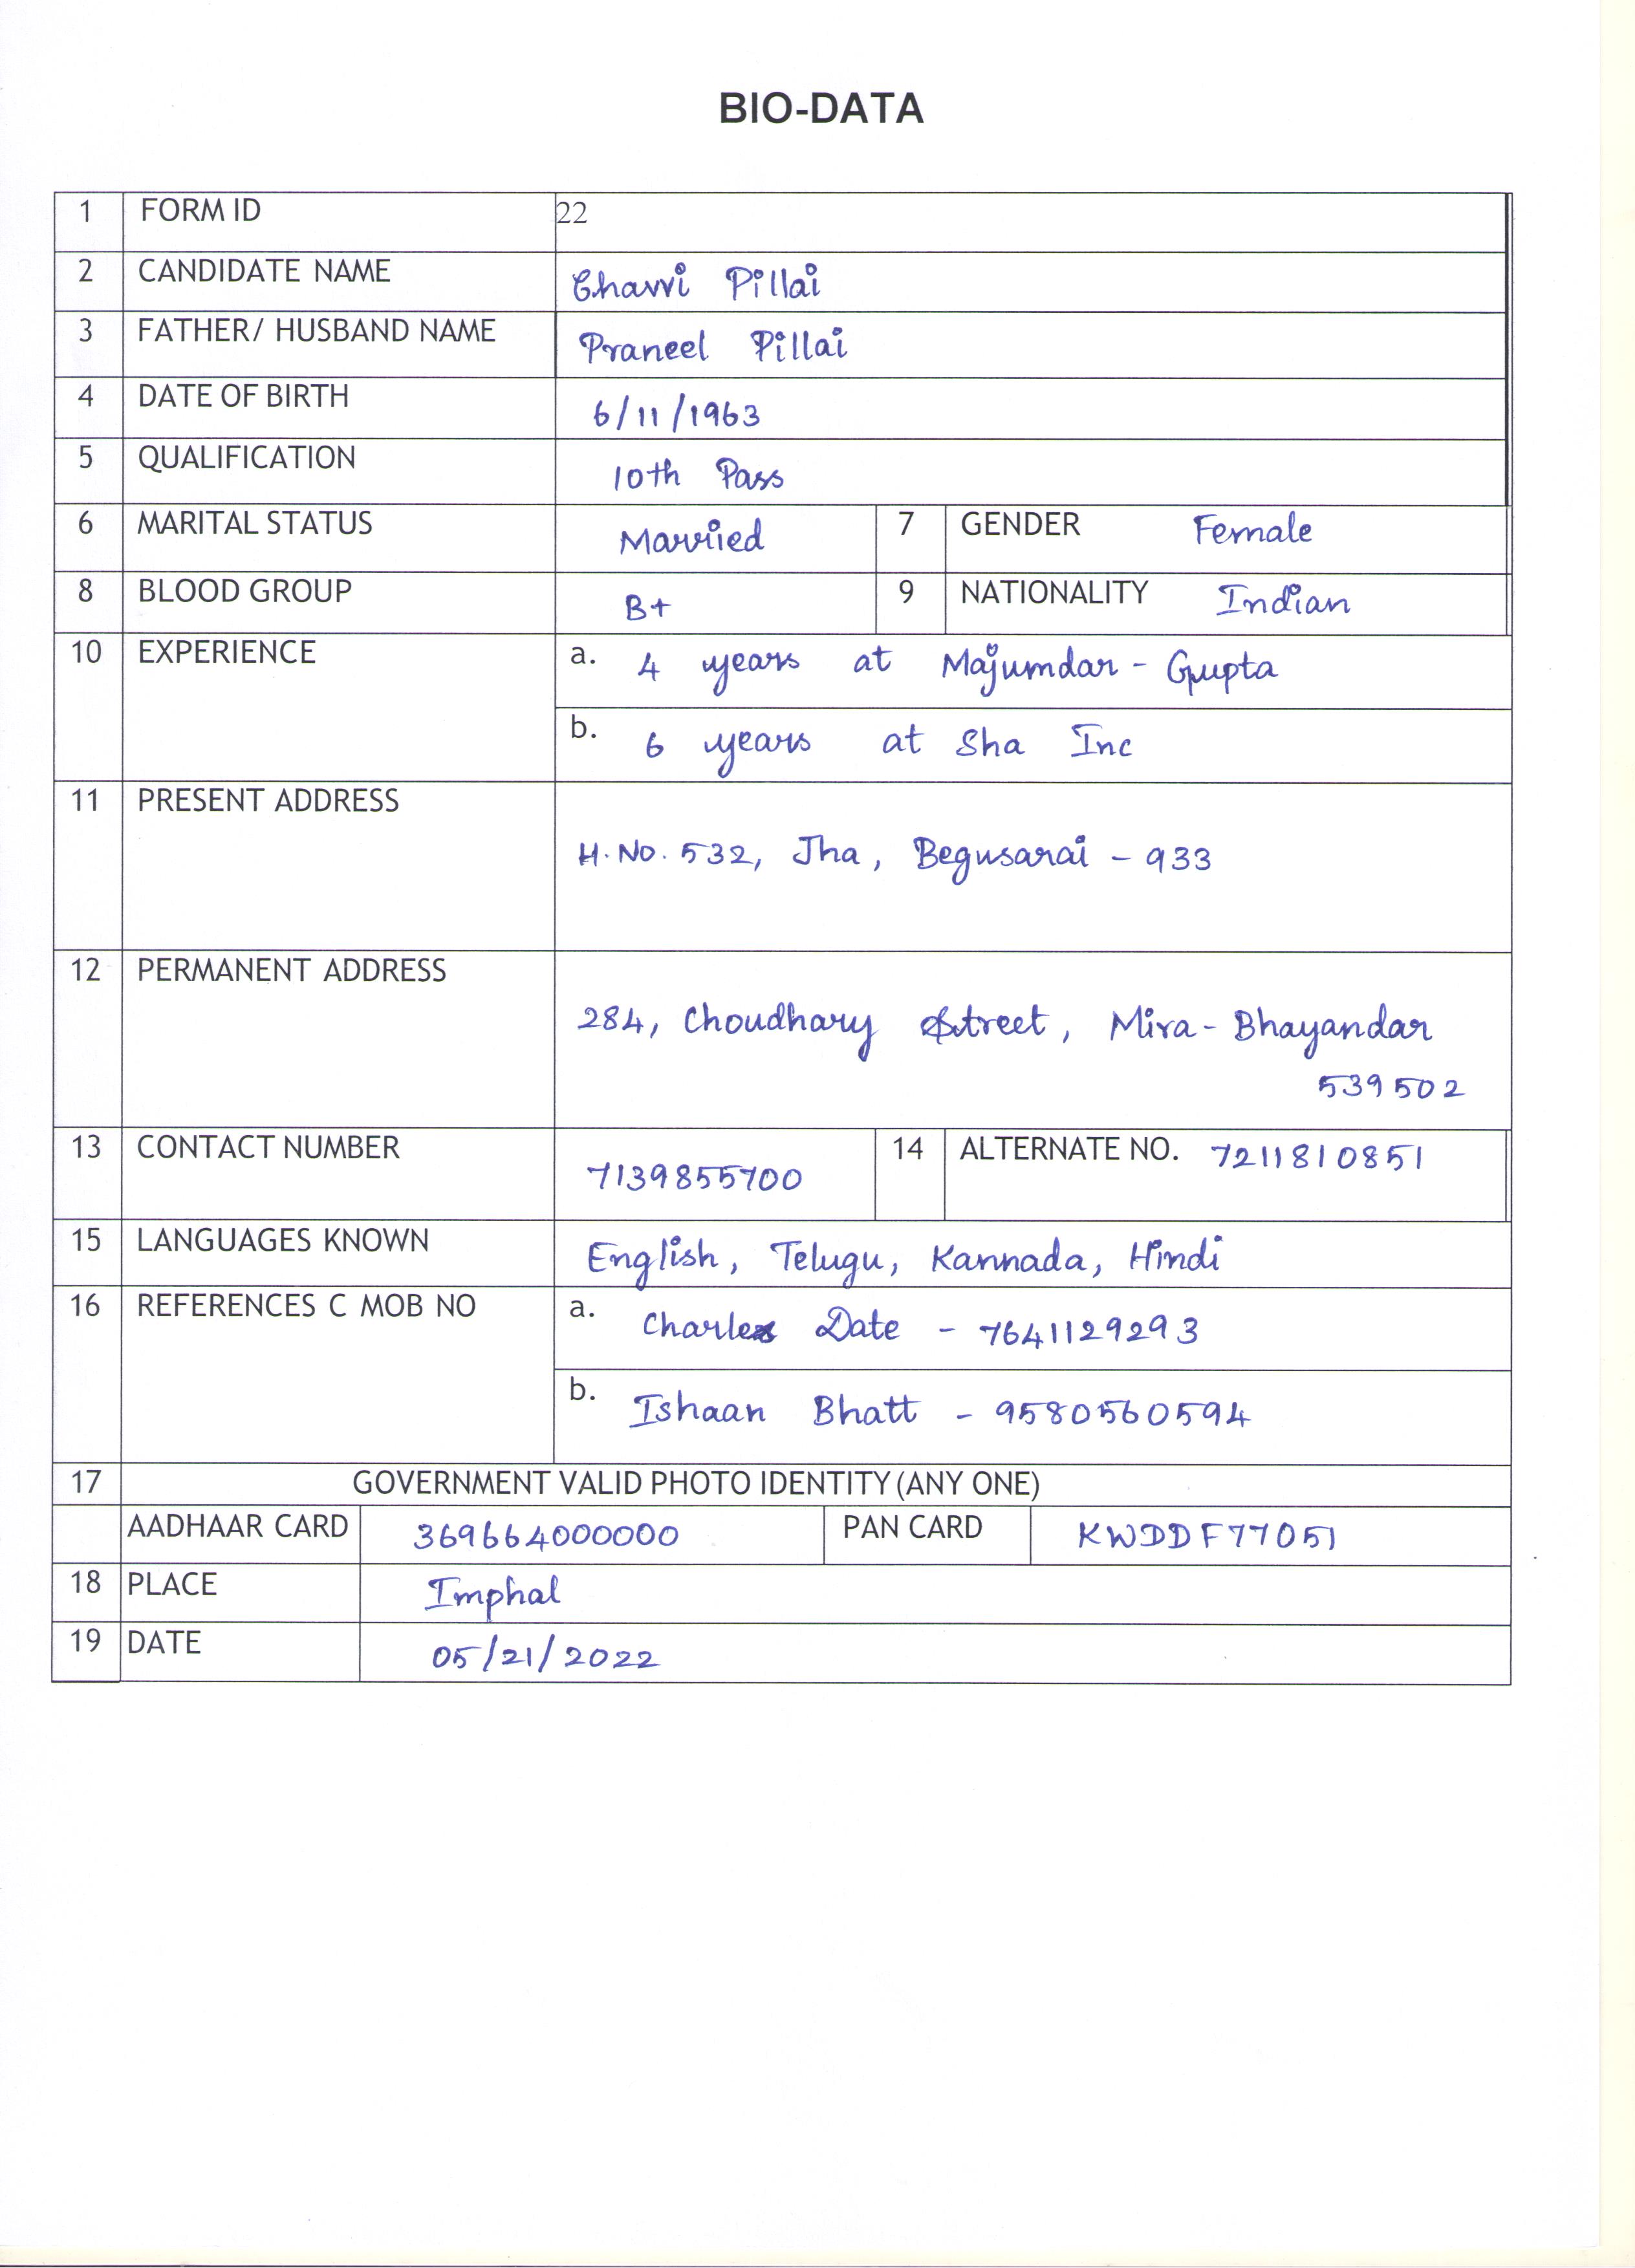 BIO-DATA
1 FORM ID 22
2 CANDIDATE NAME Charvi Pillai
3 FATHER/ HUSBAND NAME Praneel Pillai
4 DATE OF BIRTH 6/11/1963
5 QUALIFICATION 10th Pass
6 MARITAL STATUS Married 7 GENDER Female
8 BLOOD GROUP B+ 9 NATIONALITY Indian
10 EXPERIENCE a. 4 years at Majumdar - Gupta
b. 6 years at Sha Inc
11 PRESENT ADDRESS
H.No. 532, Jha, Begusarai - 933
12 PERMANENT ADDRESS
284, Choudhary Street, Mira - Bhayandar
539502
13 CONTACT NUMBER 7139855700 14 ALTERNATE NO. 7211810851
15 LANGUAGES KNOWN English, Telugu, Kannada, Hindi
16 REFERENCES C MOB NO a. Charles Date - 7641129293
b. Ishaan Bhatt - 9580560594
17 GOVERNMENT VALID PHOTO IDENTITY (ANY ONE)
AADHAAR CARD 369664000000 PAN CARD KWDDF77051
18 PLACE Imphal
19 DATE 05/21/2022